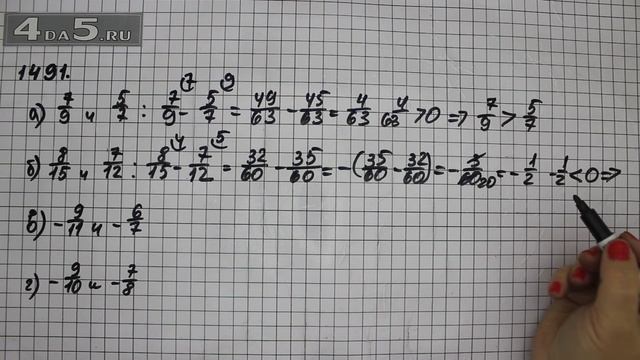 4DA5.RU
1491.
а) 7/9 и 5/7 : 7/9 (7 - 5/7 (9 = 49/63 - 45/63 = 4/63 4/63 > 0 => 7/9 > 5/7
б) 8/15 и 7/12 : 8/15 (4 - 7/12 (5 = 32/60 - 35/60 = -(35/60 - 32/60) = - 3/60 20 = - 1/2 - 1/2 < 0 =>
в) - 9/11 и - 6/7
г) - 9/10 и - 7/8